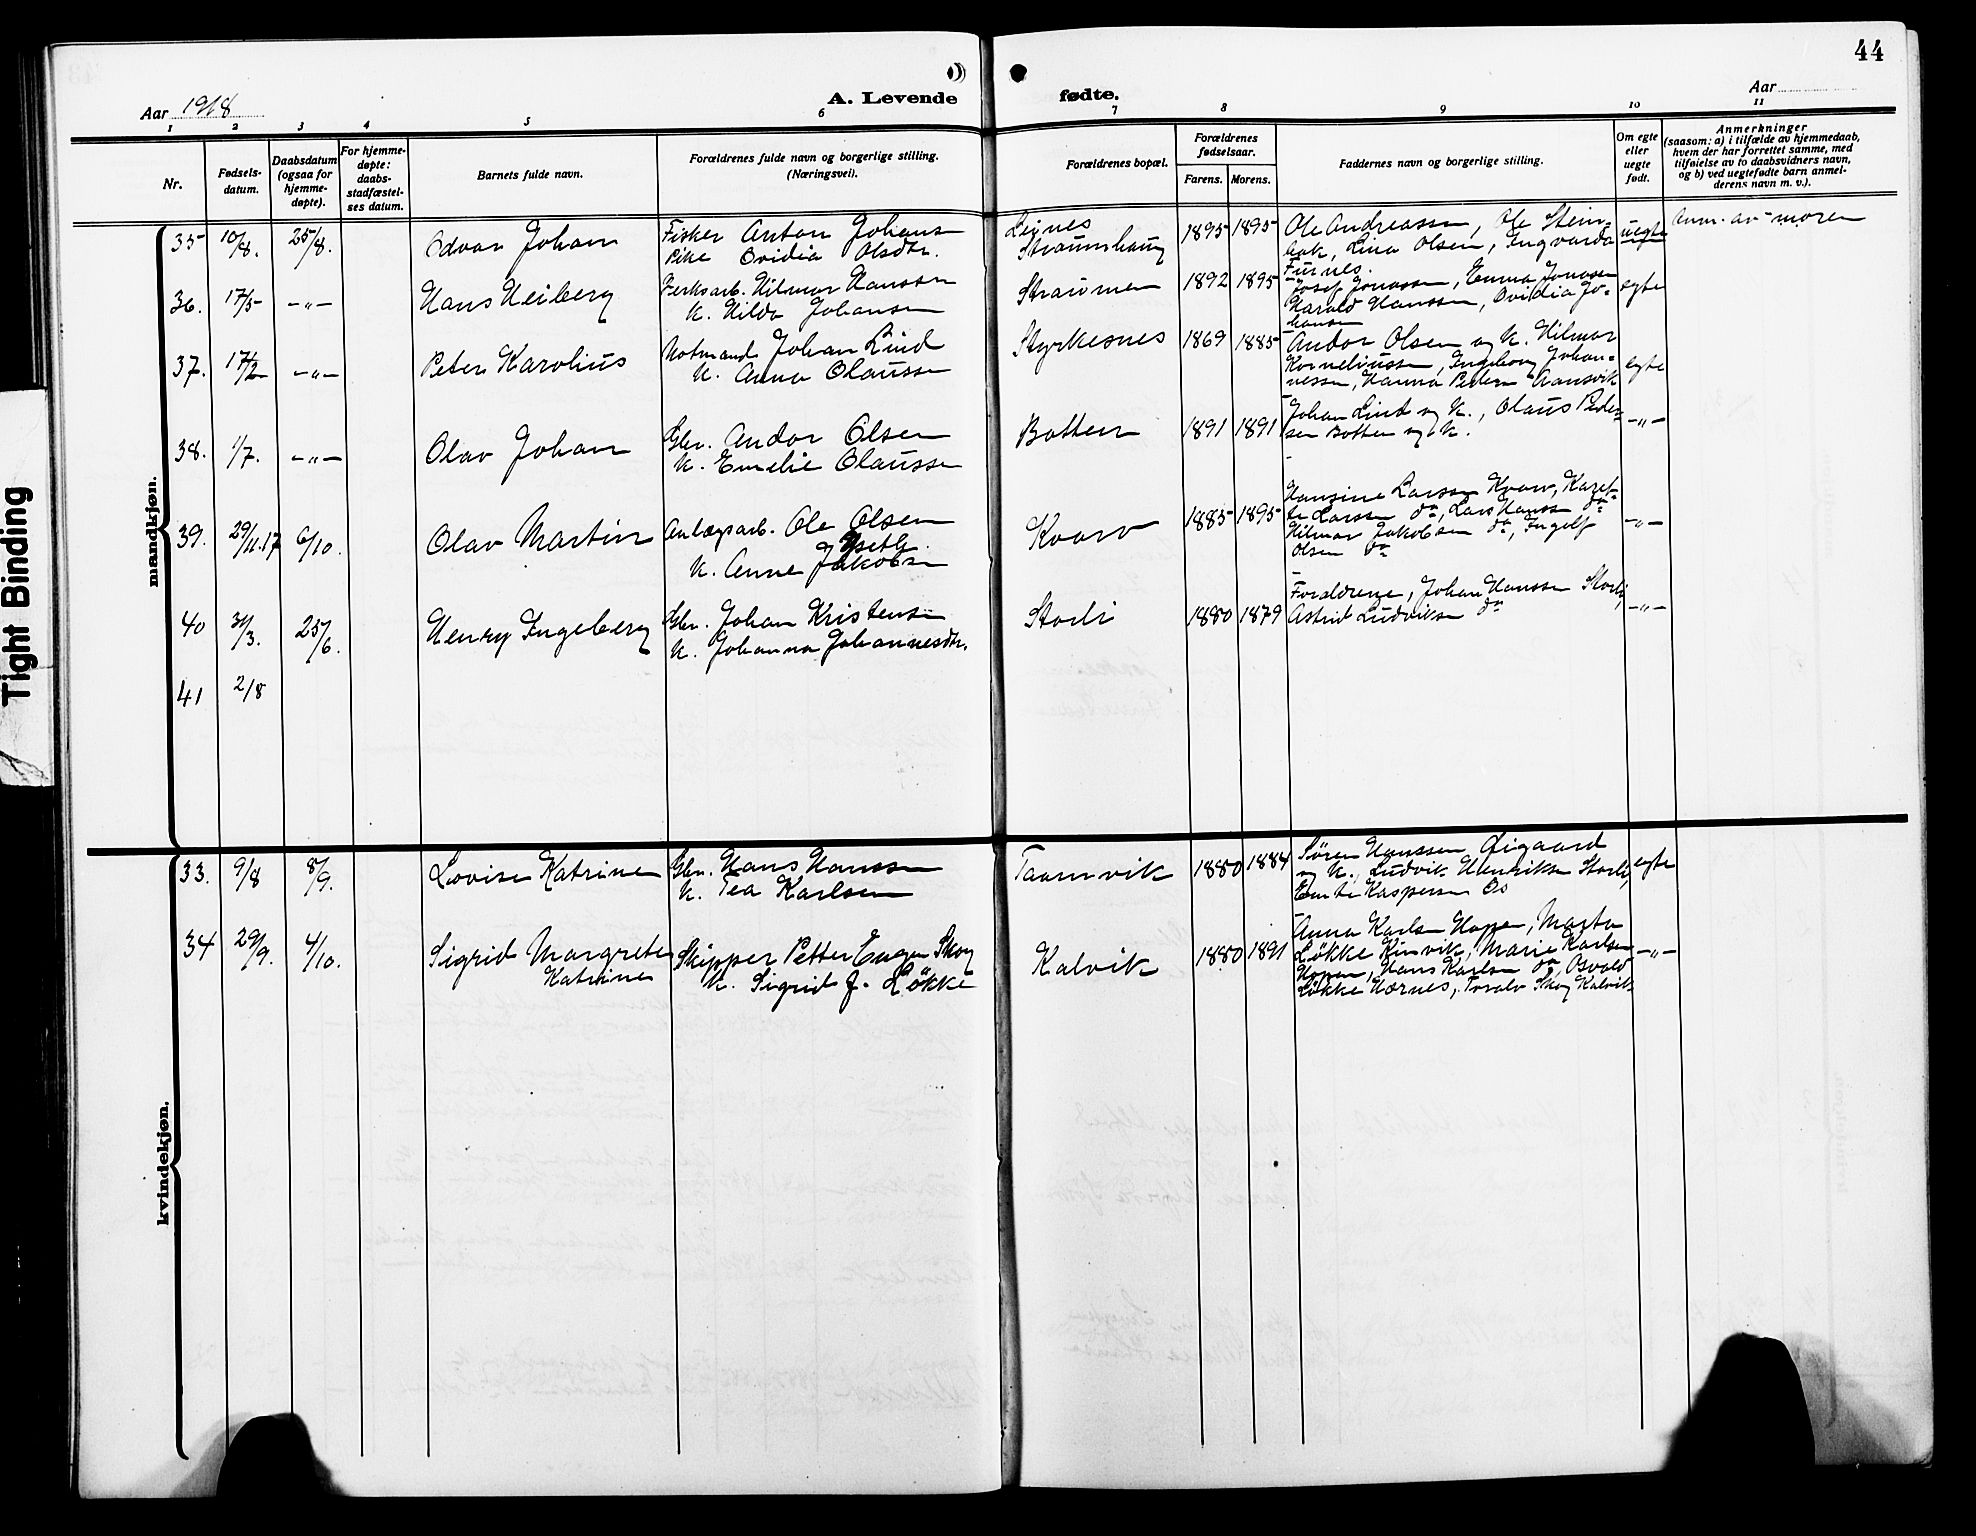 44
Aar 1918
A. Levende
fødte.
Aar
1 2 3 4 5 6 7 8 9 10 11
Nr.
Fødsels-
datum.
Daabsdatum
(ogsaa for
hjemme-
døpte).
For hjemme-
døpte:
daabs-
stadfæstel-
ses datum.
Barnets fulde navn.
Forældrenes fulde navn og borgerlige stilling.
(Næringsvei).
Forældrenes bopæl.
Forældrenes
fødselsaar.
Farens. Morens.
Faddernes navn og borgerlige stilling.
Om egte
eller
uegte
født.
Anmerkninger
(saasom: a) i tilfælde av hjemmedaab,
hvem der har forrettet samme, med
tilføielse av to daabsvidners navn,
og b) ved uegtefødte barn anmel-
derens navn m. v.).
mandkjøn.
35 10/8. 25/8. Edvar Johan
Fisker Anton Johans
Pike Ovidia Olsdtr.
Leines
Straumshaug
1895 1895
Ole Andreassen, Ole Stein-
bak, Lina Olsen, Ingvarda
Furnes.
uegte
Anm. av moren
36. 17/5 -"- Hans Heiberg
Ferksarb. Hilmar Hanssen
K. Hilda Johansen
Straumen
1892 1895
Josef Jonassen, Emma Jonassen
Harald Hanssen, Ovidia Jo-
hansen
egte
37. 17/2 -"- Peter Karolius
Notmand Johan Lind
K. Anna Claussen
Styrkesnes
1869 1885
Andor Olsen og K. Hilmar
Korneliussen, Ingeborg Johan-
nessen, Hanna Peders Aansvik
egte
38. 1/7. -"- Olav Johan
Gbr. Andor Olsen
K. Emelie Claussen
Botten
1891 1891
Johan Lind og K., Olaus Peder-
sen Botten og K.
-"-
39. 29/11.17 6/10. Olav Martin
Anlægsarb. Ole Olsen
K. Anne Jakobsn
Kvarv
1885 1895
Hansine Larssen Kvarv, Karet-
te Larssen do, Lars Hanssen do
Hilmar Jakobsen do, Ingolf
Olsen do
-"-
40 31/3. 25/6. Henry Ingeberg
Gbr. Johan Kristensen
K. Johanna Johannesdtr.
Storli
1880 1879
Forældrene, Johan Hanssen Storli,
Astrid Ludviksen do
-"-
41 2/8
kvindekjøn.
33. 9/8 8/9. Lovise Katrine
Gbr. Hans Hanssen
K. Tea Karlsen
Taarnvik
1880 1884
Søren Hanssen Øigaard
og K., Ludvik Henriksen Storli,
Kaspersen Os
egte
34 29/9. 4/10. Sigrid Margrete
Katrine
Skipper Petter Eugen Skog
K. Sigrid J. Løkke
Kalvik
1880 1891
Anna Karlsen Hopen, Marta
Løkke Kinvik, Marie Karlsen
Hopen, Hans Karlsen do, Osvald
Løkke Hærnes, Toralv Skog Kalvik
-"-
Tight Binding